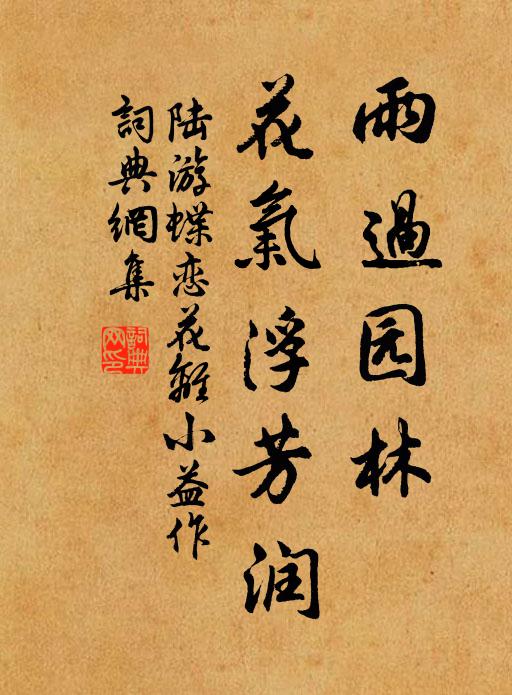 雨過园林
花氣浮芳润
陆游蝶恋花離小益作
詞典網集
詞典網印